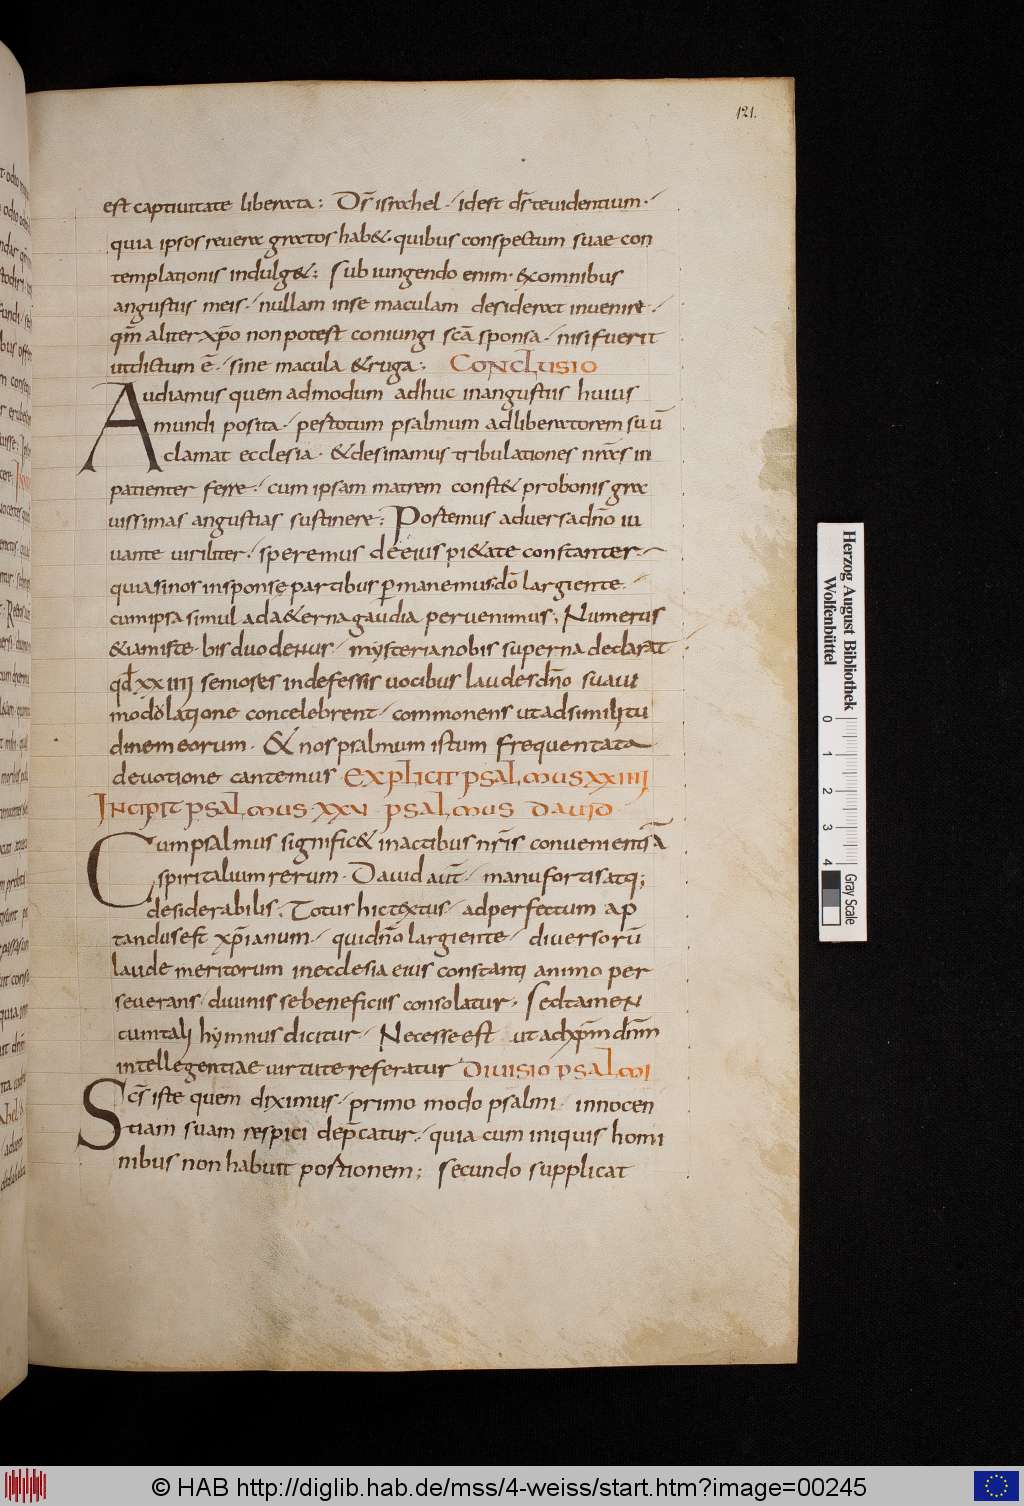 121.
est captiuitate liberata: Dr̄ israhel · idest dr̄ teuidentium ·
quia ipsos reuera gratos hab& · quibus conspectum suae con
templationis indulg&; Subiungendo enim · & omnibus
angustiis meis · nullam inse maculam desiderat inuenire ·
qm̄ aliter xp̄o non potest coniungi sc̄a sponsa · nisi fuerit
ut dictum ē · sine macula & ruga; CONCLUSIO
Audiamus quem admodum adhuc in angustiis huius
mundi posita · pestotum psalmum ad liberatorem suū
clamat ecclesia · & desinamus tribulationes nr̄as in
patienter ferre · cum ipsam matrem const& pro bonis gra
uissimas angustias sustinere: Postemus aduersa dn̄o iu
uante uiriliter · speremus de eius pi&ate constanter ·
quia si nos in sponsę partibus p̄manemus · dn̄o largiente ·
cum ipsa simul ad a&erna gaudia peruenimus; Numerus
&iam iste · bis duodenus · mysteria nobis superna declarat
qd̄ xxiiii seniores indefessis uocibus laudes dn̄o suaui
modolatione concelebrent · commonens ut ad similitu
dinem eorum · & nos psalmum istum frequentata
deuotione cantemus EXPLICIT PSALMUS XXIIII
INCIPIT PSALMUS · XXV · PSALMUS DAUID
Cum psalmus signific& in actibus nr̄is conuenientiā
spiritalium rerum · Dauid aut̄ · manu fortis atq;
desiderabilis · Totus hic textus · ad perfectum ap
tandus est xp̄ianum · qui dn̄o largiente · diuersorū
laude meritorum in ecclesia eius constanti animo per
seuerans · diuinis se beneficiis consolatur · Sed tamen
cum tali hymnus dicitur · Necesse est ut ad xp̄m dn̄m
intellegentiae uirtute referatur DIUISIO PSALMI
Sc̄s iste quem diximus · primo modo psalmi · innocen
tiam suam respici dep̄catur · quia cum iniquis homi
nibus non habuit postionem; secundo supplicat
Herzog August Bibliothek
Wolfenbüttel
0 1 2 3 4
Gray Scale
© HAB http://diglib.hab.de/mss/4-weiss/start.htm?image=00245